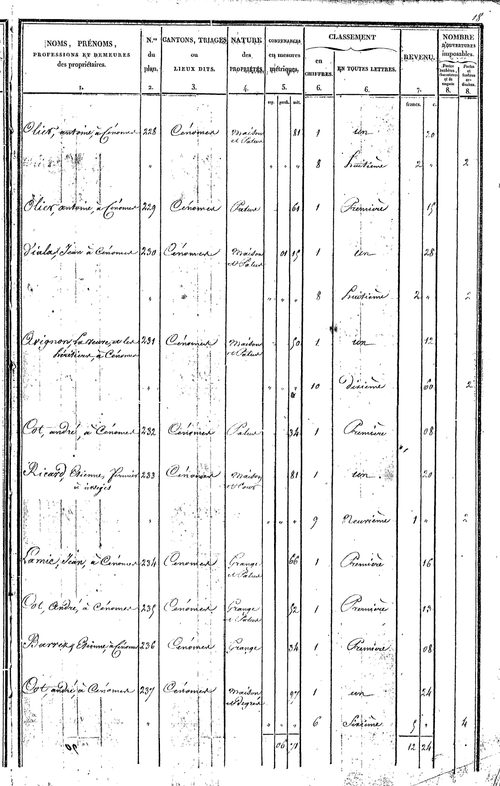 18
NOMS, PRÉNOMS,
PROFESSIONS ET DEMEURES
des propriétaires.
1.
N.os
du
plan.
2.
CANTONS, TRIAGES
ou
LIEUX DITS.
3.
NATURE
des
PROPRIÉTÉS.
4.
CONTENANCES
en mesures
métriques.
5.
CLASSEMENT
en
CHIFFRES.
6.
EN TOUTES LETTRES.
6.
REVENU.
7.
NOMBRE
D'OUVERTURES
imposables.
8.
8.
francs. c.
Olier, antoine, à Cénomes 228 Cénomes Maison 81 1 un 20
et Patus
" " " " 8 huitième 2 " 2
Olier, antoine, à Cénomes 229 Cénomes Patus 61 1 Première 15
Viala, Jean à Cénomes 230 Cénomes Maison 01 15 1 un 28
et Patus
" " " " 8 huitième 2 " 2
Avignon, la veuve, et les 231 Cénomes Maison 50 1 un 12
héritiers, à Cénomes et Patus
" " " " 10 Dixième 60 2
Cot, andré, à Cénomes 232 Cénomes Patus 34 1 Première 08
Ricard, Etienne, fermier 233 Cénomes Maison 81 1 un 20
et Cour
" " " " 9 Neuvième 1 " 2
Lamic, Jean, à Cénomes 234 Cénomes Grange 66 1 Première 16
et Patus
Cot, André, à Cénomes 235 Cénomes Grange 52 1 Première 13
et Patus
Etienne, à Cénomes 236 Cénomes Grange 34 1 Première 08
Cot, andré, à Cénomes 237 Cénomes Maison 97 1 un 24
" " " " 6 Sixième 5 " 4
06 71 12 24